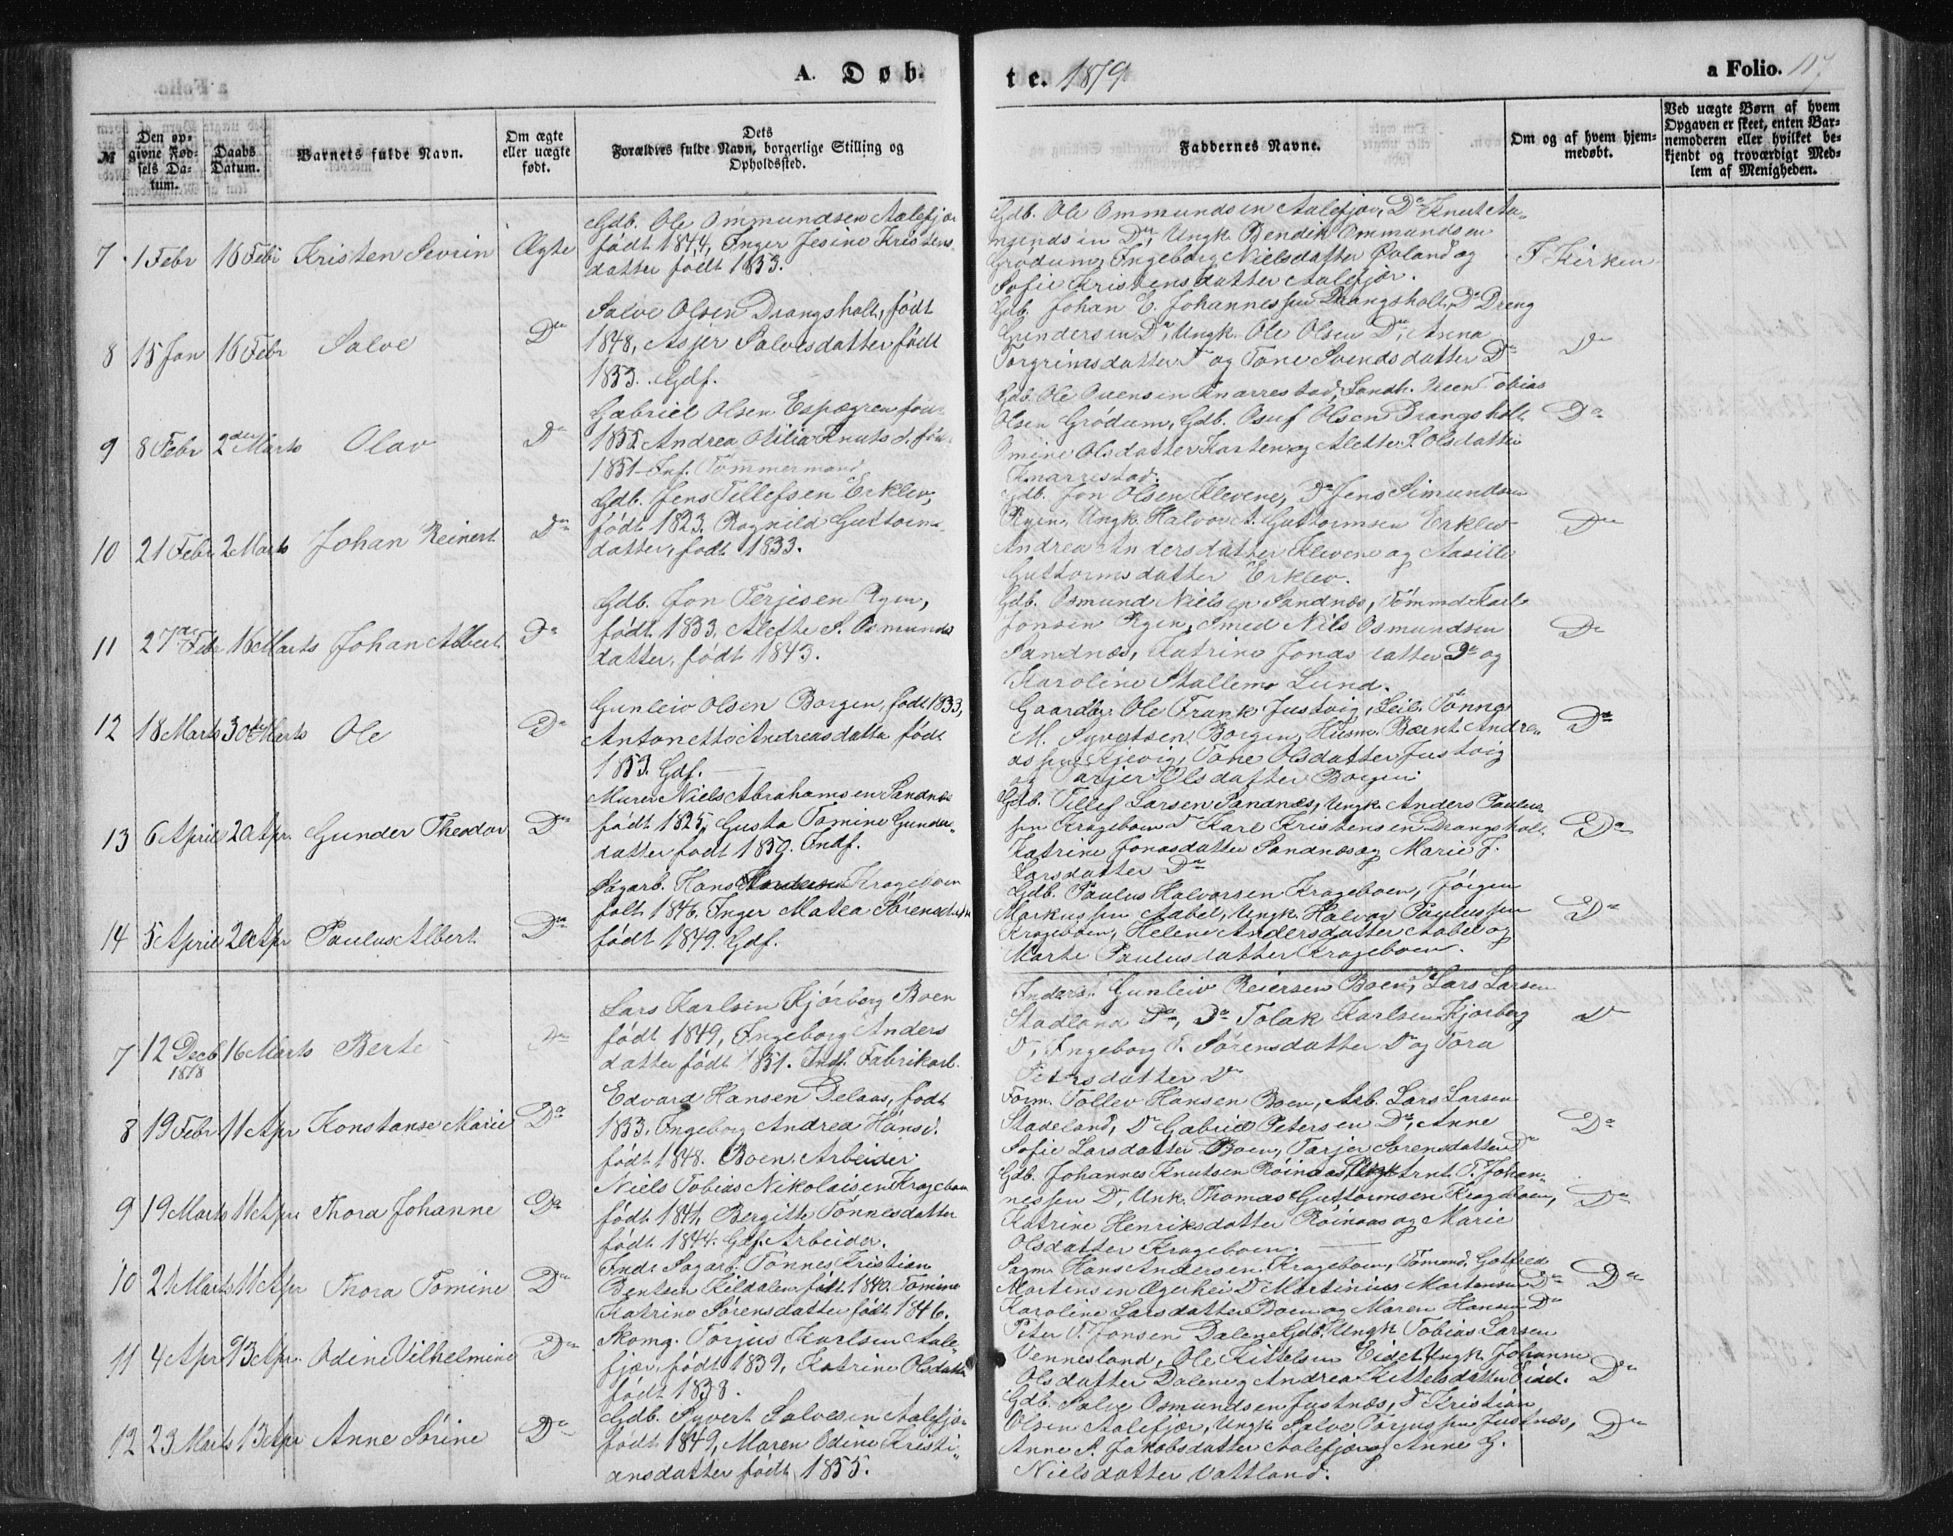 A. Døbte. 1879
a Folio. 117
№
Den opgivne Fødsels Datum.
Daabs Datum.
Barnets fulde Navn.
Om ægte eller uægte født.
Dets Forældres fulde Navn, borgerlige Stilling og Opholdssted.
Faddernes Navne.
Om og af hvem hjemmedøbt.
Ved uægte Børn af hvem Opgaven er skeet, enten Barnemoderen eller hvilket bekjendt og troværdigt Medlem af Menigheden.
7 1 Febr 16 Febr Kristen Sevrin Ægte
Gdb. Ole Ommundsen Aalefjær
født 1844, Inger Jesine Kristens
datter født 1853.
Gdb. Ole Ommundsen Aalefjær, Do Knut Aa-
mundsen Do, Ungk. Bendik Ommundsen
Grødum, Ingeborg Nielsdatter Øvland og
Sofie Kristensdatter Aalefjær.
I Kirken
8 15 Jan 16 Febr Salve Do
Salve Olsen Drangsholt, født
1848, Asjer Salvesdatter født
1853. Gdf.
Gdb. Johan E. Johannessen Drangsholt, Do Dreng
Gundersen Do, Ungk. Ole Olsen Do, Anna
Torgrimsdatter Do og Tone Svendsdatter Do
Do
9 8 Febr 2den Marts Olav Do
Gabriel Olsen Espegren fød
1855 Andrea Otilia Knuts d. fød
1851 Inf. Tømmermand
Gdb. Ole Ouensen Knarrestad, Sandh. Ueen Tobias
Olsen Grødum, Gdb. Osuf Olsen Drangsholt
Omine Olsdatter Kosten og Alette S. Olsdatter
Knarrestad.
Do
10 21 Febr 2 Marts Johan Reinert Do
Gdb. Jens Tellefsen Erklev,
født 1823, Ragnild Guttorms-
datter, født 1833.
Gdb. Jon Olsen Kleven, Do Jens Simundsen
Ryen, Ungk. Halvor A. Guttormsen Erklev
Andrea Andersdatter Kleven og Aasille
Guttormsdatter Erklev.
Do
11 27de Febr 16 Marts Johan Albert Do
Gdb. Jon Terjesen Ryen,
født 1833, Alette S. Osmunds
datter, født 1843.
Gdb. Osmund Nielsen Sandnæs, Tømmd Karl
Jonsen Ryen, Smed Nils Osmundsen
Sandnæs, Katrine Jonasdatter Do og
Karoline Stallemo Lund.
Do
12 18 Marts 30te Marts Ole Do
Gunleiv Olsen Borgen, født 1833,
Antonette Andreasdatte født
1853. Gdf.
Gaardbr. Ole Frank Justvig, Seil. Tønnes
M. Syvertsen Borgen, Husm. Bærnt Andre-
assen Kjevig, Tone Olsdatter Justvig
og Tarjer Olsdatter Borgen.
Do
13 6 April 20 Apr. Gunder Theodor Do
Murer Niels Abrahamsen Sandnæs
født 1825, Gusta Tomine Gunder-
datter født 1839. Indf.
Gdb. Tellef Larsen Sandnæs, Ungk. Anders Paulus-
sen Krageboen Do Karl Kristensen Drangsholt
Katrine Jonasdatter Sandnæs og Marie J.
Larsdatter Do
Do
14 5 April 20 Apr Paulus Albert Do
Sagarb. Hans Andersen Krageboen
født 1846. Inger Matea Sørensdatter
født 1849. Gdf.
Gdb. Paulus Halvorsen Krageboen, Jørgen
Markussen Aabel, Ungk. Halvor Paulussen
Krageboen, Helene Andersdatter Aabel og
Marte Paulusdatter Krageboen.
Do
7 12 Decb 1878 16 Marts Berte Do
Lars Karlsen Kjørberg Boen
født 1849, Ingeborg Anders
datter født 1851. Indf. Fabrikarb.
Inders. Gunleiv Reiersen Boen, Do Lars Larsen
Stadland Do, Do Tolak Karlsen Kjørberg
Do, Ingeborg T. Sørensdatter Do og Tora
Petersdatter Do
Do
8 19 Febr 11 Apr Konstanse Marie Do
Edvard Hansen Delaas, født
1853, Ingeborg Andrea Hansd.
født 1848. Boen. Arbeider
Form. Tollev Hansen Boen, Arb. Lars Larsen
Stadeland, Do Gabriel Petersen Do, Anne
Sofie Larsdatter Boen, Tarjer Sørensdatter Do
Do
9 19 Marts 11 Apr Thora Johanne Do
Niels Tobias Nikolaisen Krageboen
født 1841, Bergitte Tønnesdatter
født 1844. Gdf. Arbeider.
Gdb. Johannes Knutsen Røinaas, Ungk Arnt T. Johan-
nessen Do, Unk. Thomas Guttormsen Krageboen,
Katrine Henriksdatter Røinaas og Marie
Olsdatter Krageboen.
Do
10 21 Marts 11 Apr Thora Tomine Do
Inds. Sagarb. Tønnes Kristian
Bentsen Kildalen født 1840. Tomine
Katrine Sørensdatter født 1846.
Sagm. Hans Andersen Krageboen, Tømmd. Gotfred
Martinsen Ægerhei Do Martinius Mortensen Do
Karoline Larsdatter Boen og Maren Hansen Do
Do
11 4 Apr 13 Apr. Odine Vilhelmine Do
Skomg. Torjus Karlsen Aale-
fjær, født 1839, Katrine Olsdatter
født 1838.
Peter T. Jonsen Dalene Gdb. Ungk Tobias Larsen
Vennesland, Ole Kittelsen Eidet Ungk. Johanne
Olsdatter Dalene og Andrea Kittelsdatter Eidet.
Do
12 23 Marts 13 Apr Anne Sørine Do
Gdb. Syvert Salvesen Aalefjær
født 1849, Maren Odine Kristi-
ansdatter født 1855.
Gdb. Salve Osmundsen Justnæs, Do Kristian
Olsen Aalefjær, Ungk. Salve Torjussen Justnæs,
Anne S. Jakobsdatter Aalefjær og Anne G.
Nielsdatter Vattland.
Do